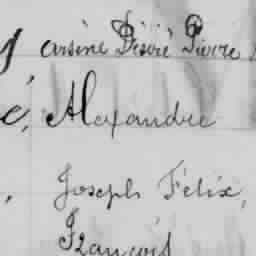 arsène Désiré Pierre
é, Alexandre
, Joseph Félix,
François